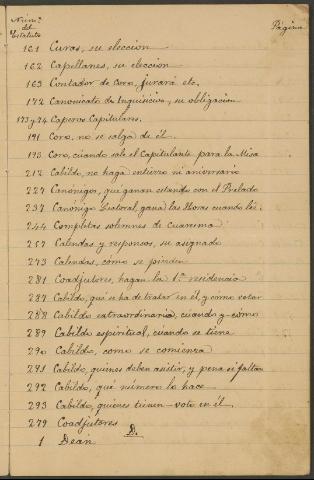 Núm.º del Estatuto
Página
161 Curas, su elección
162 Capellanes, su elección
163 Contador de Coro, jurará etc.
172 Canonicato de Inquisición, su obligación
173 y 74 Caperos Capitulares.
191 Coro, no se salga de él
193 Coro, cuando sale el Capitulante para la Misa
212 Cabildo, no haga entierro ni aniversario
227 Canónigos, que ganan estando con el Prelado
237 Canónigo Lectoral, gana las Horas cuando lée.
244 Completas solemnes de cuaresma
257 Calendas y responsos, su asignado
273 Calendas, como se pierden
281 Coadjutores, hagan la 1ª residencia
287 Cabildo, que se ha de tratar en él, y como votar
288 Cabildo extraordinario, cuando y como
289 Cabildo espiritual, cuando se tiene
290 Cabildo, como se comienza
291 Cabildo, quienes deben asistir, y pena si faltan
292 Cabildo, que número lo hace
293 Cabildo, quienes tienen voto en él
279 Coadjutores
D.
1 Dean